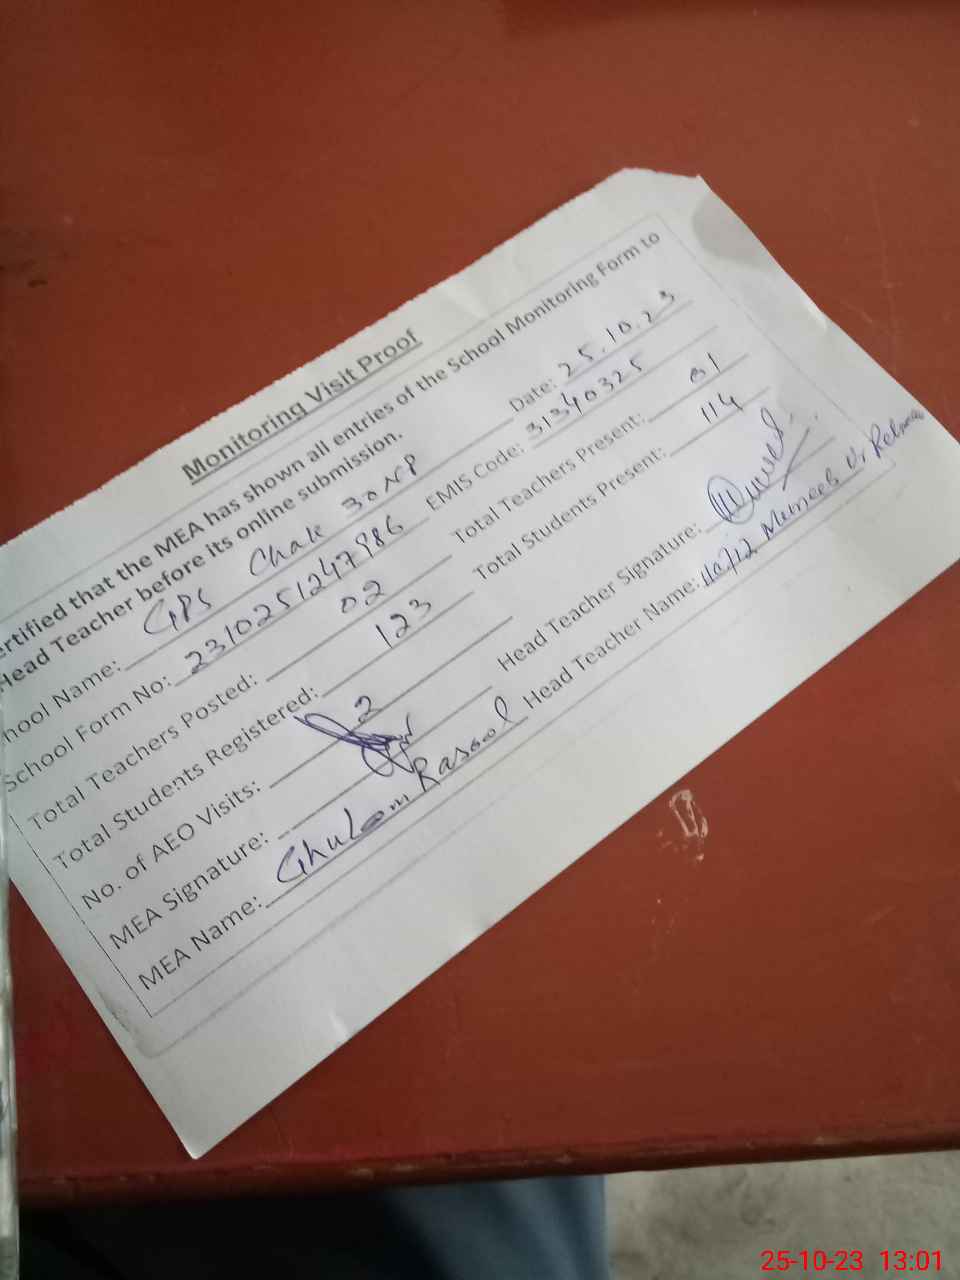 Monitoring Visit Proof
ertified that the MEA has shown all entries of the School Monitoring Form to
Head Teacher before its online submission.
hool Name: GPS Chak 30 NP Date: 25.10.23
School Form No: 2310251247986 EMIS Code: 31340325
Total Teachers Posted: 02 Total Teachers Present: 01
Total Students Registered: 123 Total Students Present: 114
No. of AEO Visits: 2
MEA Signature: Head Teacher Signature:
MEA Name: Ghulam Rasool Head Teacher Name: Muneeb Ur
25-10-23 13:01